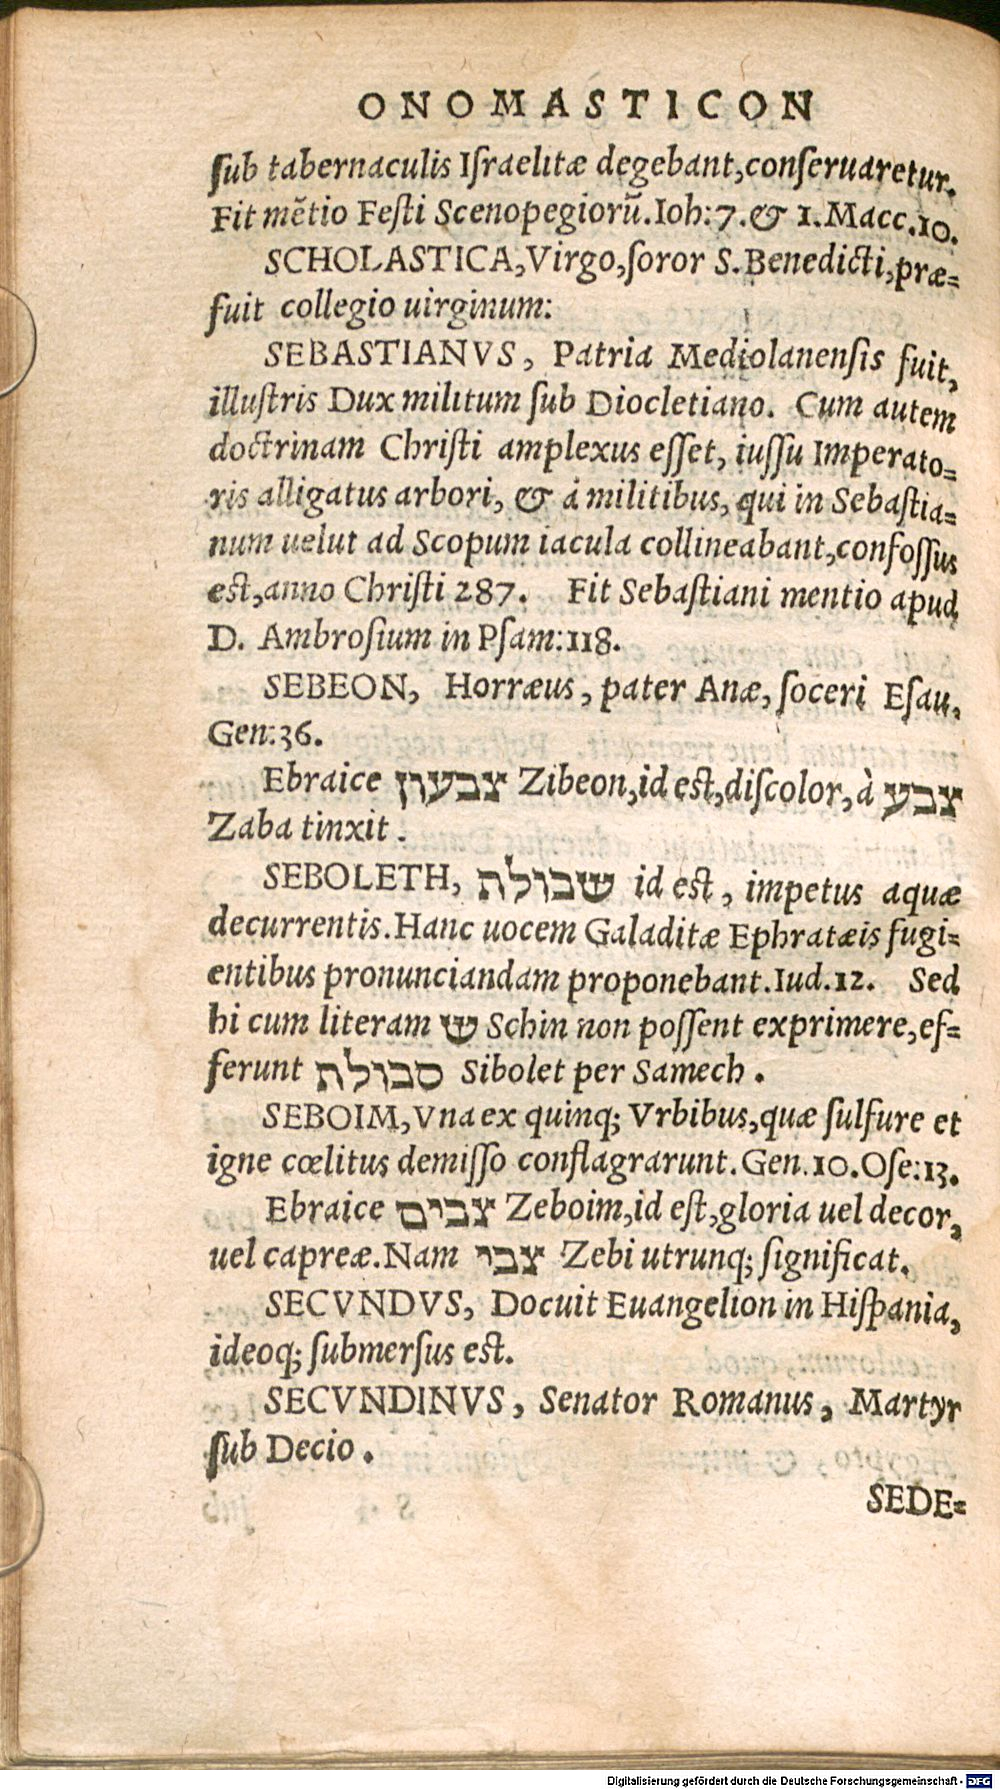 ONOMASTICON
ſub tabernaculis Iſraelitæ degebant,conſeruaretur.
Fit mẽtio Feſti Scenopegiorũ.Ioh:7.& 1.Macc.10.
SCHOLASTICA,Virgo,ſoror S.Benedicti,præ=
fuit collegio uirginum:
SEBASTIANVS, Patria Mediolanenſis fuit,
illuſtris Dux militum ſub Diocletiano. Cum autem
doctrinam Chriſti amplexus eſſet, iuſſu Imperato=
ris alligatus arbori, & à militibus, qui in Sebaſtia=
num uelut ad Scopum iacula collineabant,confoſſus
eſt,anno Chriſti 287. Fit Sebaſtiani mentio apud
D. Ambroſium in Pſam:118.
SEBEON, Horræus, pater Anæ, ſoceri Eſau,
Gen:36.
Ebraice צבעון Zibeon,id eſt,diſcolor, à צבע
Zaba tinxit.
SEBOLETH, שבולת id eſt, impetus aquæ
decurrentis.Hanc uocem Galaditæ Ephratæis fugi=
entibus pronunciandam proponebant.Iud.12. Sed
hi cum literam ש Schin non poſſent exprimere,ef=
ferunt סבולת Sibolet per Samech.
SEBOIM,Vna ex quinq; Vrbibus,quæ ſulfure et
igne cœlitus demiſſo conflagrarunt.Gen.10.Oſe:13.
Ebraice צבים Zeboim,id eſt,gloria uel decor,
uel capreæ.Nam צבי Zebi utrunq; ſignificat.
SECVNDVS, Docuit Euangelion in Hiſpania,
ideoq; ſubmerſus eſt.
SECVNDINVS, Senator Romanus, Martyr
ſub Decio.
SEDE=
Digitalisierung gefördert durch die Deutsche Forschungsgemeinschaft - DFG